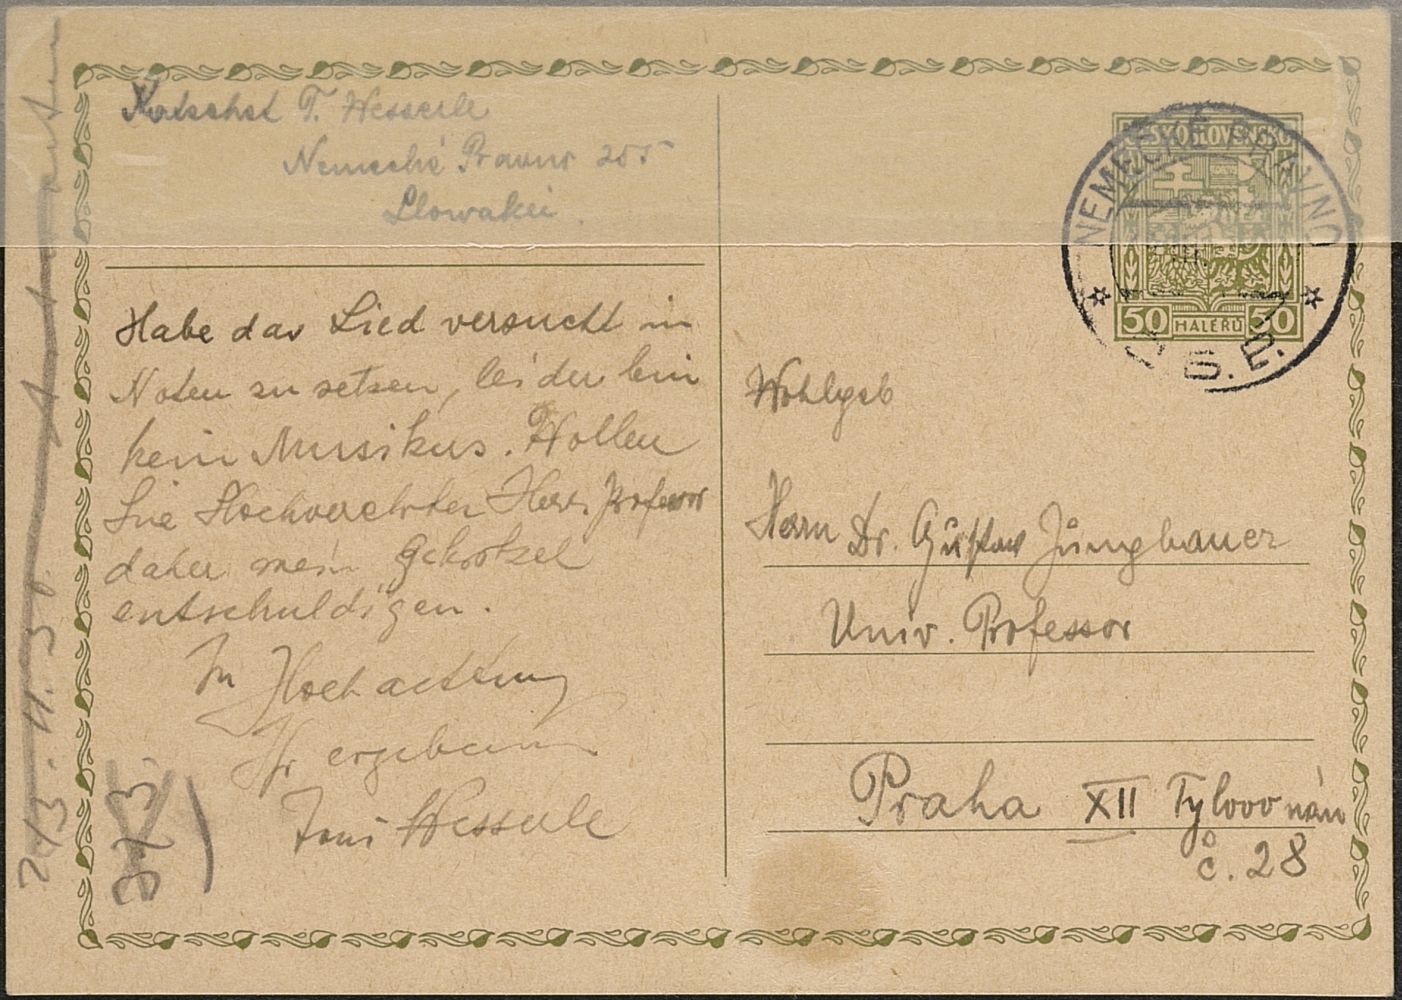 T. Wesserle
Nemecké Pravno 255
Slowakei.
Habe das Lied versucht in
Noten zu setzen, leider bin
kein Musikus. Wollen
Sie Hochverehrter Herr Professor
daher mein Gekrotzel
entschuldigen.
In Hochachtung
Ihr ergebener
Toni Wesserle
ČESKOSLOVENSKO
NEMECKÉ PRAVNO
50 HALÉŘŮ 50
Wohlgeb
Herrn Dr. Gustav Jungbauer
Univ. Professor
Praha XII Tylovo nám
č. 28